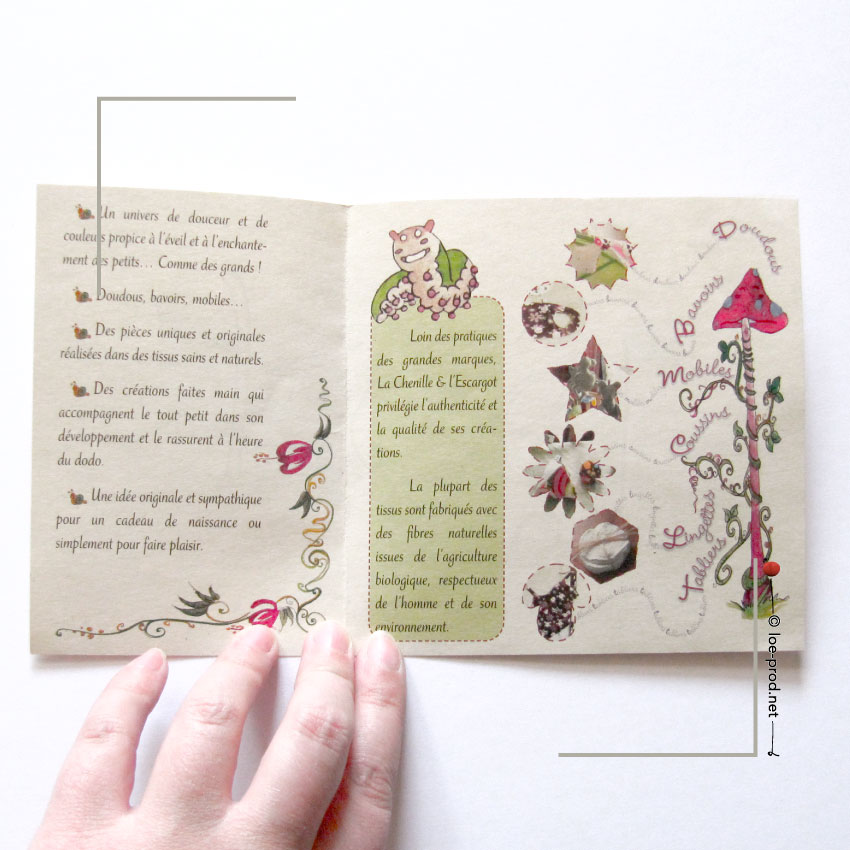 Un univers de douceur et de
couleurs propice à l'éveil et à l'enchante-
ment des petits... Comme des grands !
Doudous, bavoirs, mobiles...
Des pièces uniques et originales
réalisées dans des tissus sains et naturels.
Des créations faites main qui
accompagnent le tout petit dans son
développement et le rassurent à l'heure
du dodo.
Une idée originale et sympathique
pour un cadeau de naissance ou
simplement pour faire plaisir.
Loin des pratiques
des grandes marques,
La Chenille & l'Escargot
privilégie l'authenticité et
la qualité de ses créa-
tions.
La plupart des
tissus sont fabriqués avec
des fibres naturelles
issues de l'agriculture
biologique, respectueux
de l'homme et de son
environnement.
Doudous
Bavoirs
Mobiles
Coussins
Lingettes
Tabliers
© loe-prod.net